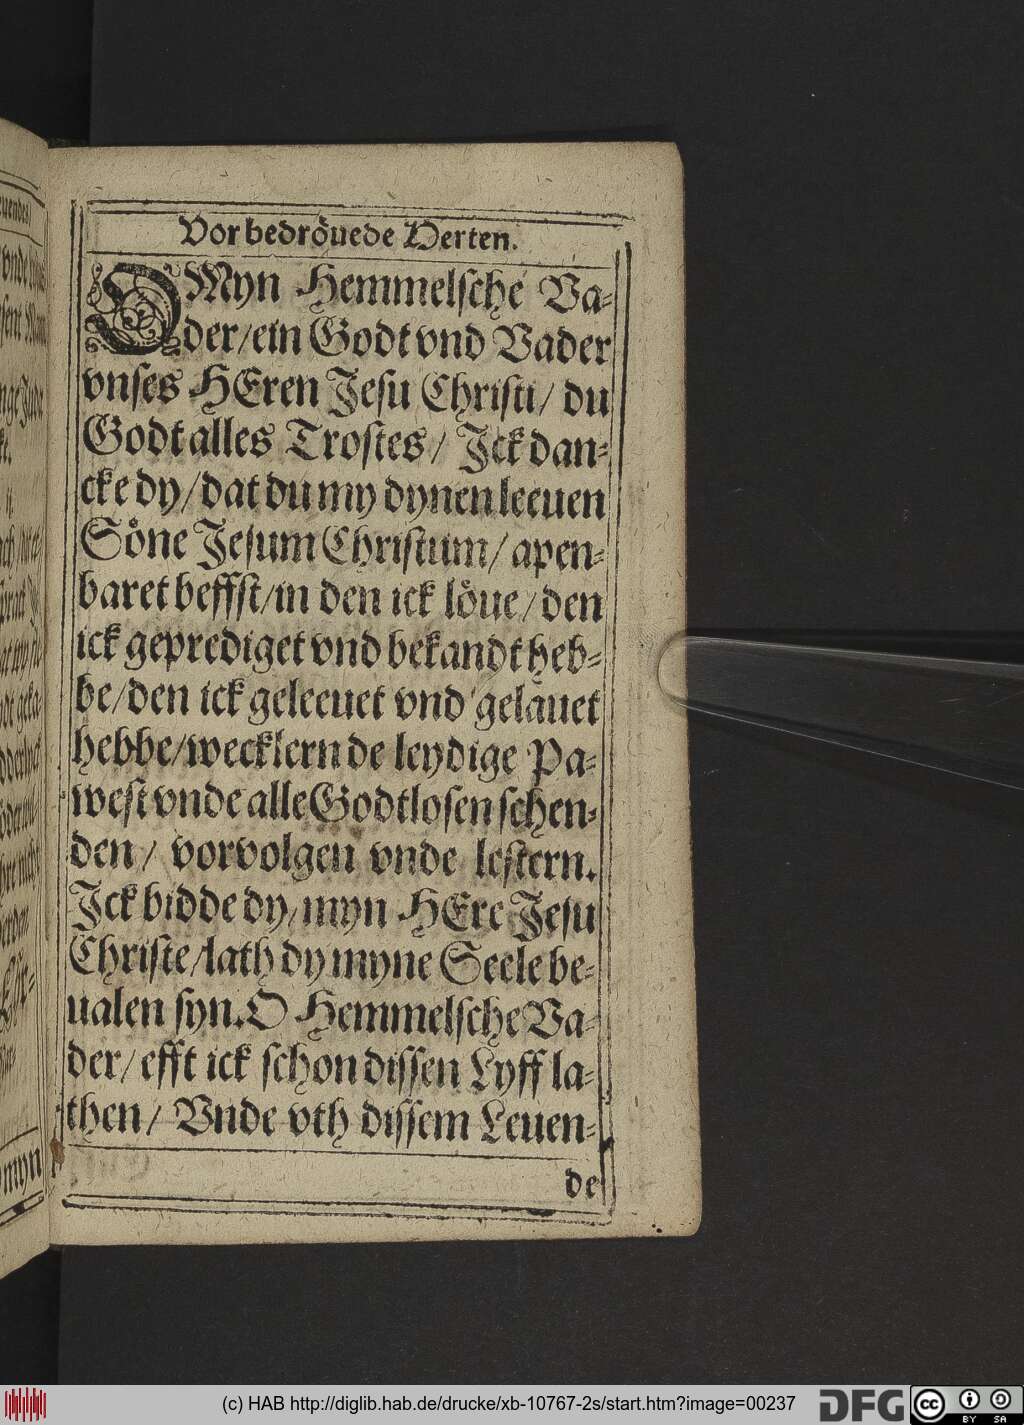 Vor bedröuede Herten.
O Myn Hemmelsche Va-
der/ ein Godt vnd Vader
vnses HEren Jesu Christi/ du
Godt alles Trostes/ Jck dan-
cke dy/ dat du my dynen leeuen
Söne Jesum Christum/ apen-
baret heffst/ in den ick löue/ den
ick geprediget vnd bekandt heb-
be/ den ick geleeuet vnd gelauet
hebbe/ wecklern de leydige Pa-
west vnde alle Godtlosen schen-
den/ vorvolgen vnde lestern.
Jck bidde dy/ myn HEre Jesu
Christe/ lath dy myne Seele be-
ualen syn. O Hemmelsche Va-
der/ efft ick schon dissen Lyff la-
then/ Vnde vth dissem Leuen-
de
myn
(c) HAB http://diglib.hab.de/drucke/xb-10767-2s/start.htm?image=00237
DFG
cc BY SA